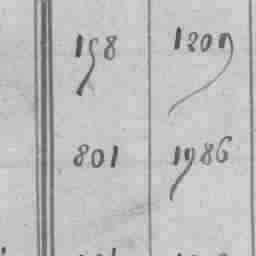 158 1209
801 1986